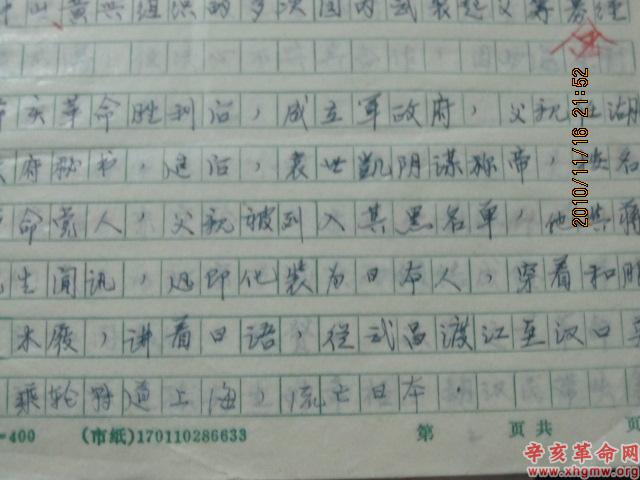 中山、黄兴组织的多次国内武装起义筹募经
辛亥革命胜利后，成立军政府，父亲在湖
府秘书，追后，袁世凯阴谋称帝，
革命党人，父亲被列入其黑名单，他与蒋
先生闻讯，迅即化装为日本人，穿着和服
木屐，讲着日语，从武昌渡江至汉口
乘轮转道上海，流亡日本．
-400 (市纸)170110286633 第 页共 页
2010/11/16 21:52
辛亥革命网
www.xhgmw.org